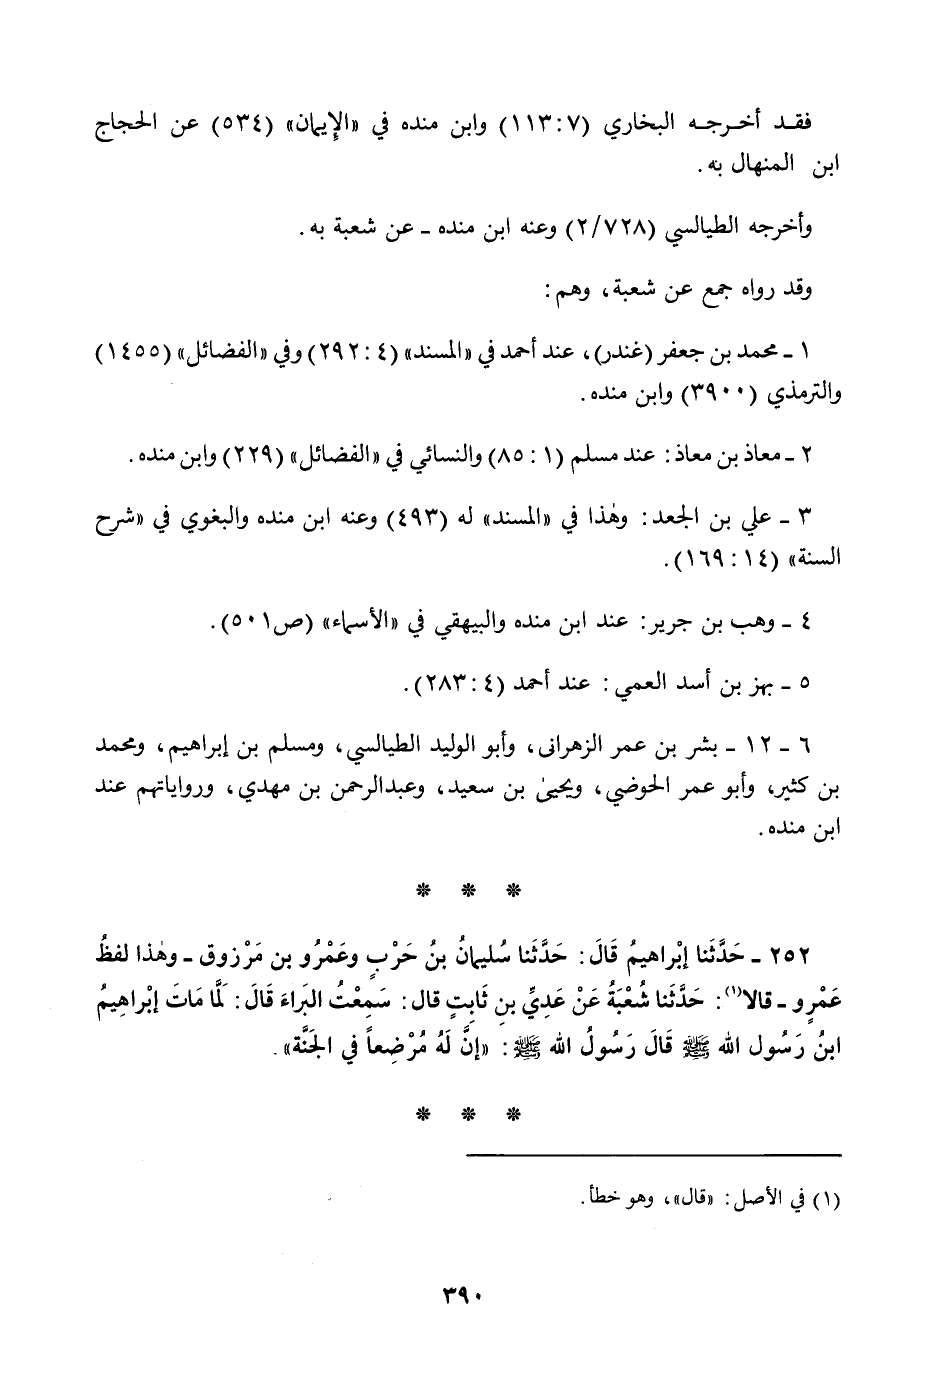 فقد أخرجه البخاري (٧:١١٣) وابن منده في «الإيمان» (٥٣٤) عن الحجاج
ابن المنهال به.
وأخرجه الطيالسي (٢/٧٢٨) وعنه ابن منده ـ عن شعبة به.
وقد رواه جمع عن شعبة، وهم:
١ ـ محمد بن جعفر (غندر)، عند أحمد في «المسند» (٤: ٢٩٢) وفي «الفضائل» (١٤٥٥)
والترمذي (٣٩٠٠) وابن منده.
٢ ـ معاذ بن معاذ: عند مسلم (١: ٨٥) والنسائي في «الفضائل» (٢٢٩) وابن منده.
٣ ـ علي بن الجعد: وهٰذا في «المسند» له (٤٩٣) وعنه ابن منده والبغوي في «شرح
السنة» (١٤: ١٦٩).
٤ ـ وهب بن جرير: عند ابن منده والبيهقي في «الأسماء» (ص٥٠١).
٥ ـ بهز بن أسد العمي: عند أحمد (٤: ٢٨٣).
٦ ـ ١٢ ـ بشر بن عمر الزهرانى، وأبو الوليد الطيالسي، ومسلم بن إبراهيم، ومحمد
بن كثير، وأبو عمر الحوضي، ويحيىٰ بن سعيد، وعبدالرحمن بن مهدي، ورواياتهم عند
ابن منده.
* * *
٢٥٢ ـ حَدَّثَنا إبْراهيمُ قَالَ: حَدَّثَنا سُليمانُ بنُ حَرْبٍ وعَمْرُو بن مَرْزوق ـ وهٰذا لفظُ
عَمْرٍو ـ قالا(١): حَدَّثَنا شُعْبَةُ عَنْ عَدِيِّ بنِ ثَابِتٍ قال: سَمِعْتُ البَراءَ قَالَ: لَمَّا مَاتَ إبْراهِيمُ
ابنُ رَسُول الله ﷺ قَالَ رَسُولُ الله ﷺ: «إنَّ لَهُ مُرْضِعاً في الجَنَّة».
* * *
(١) في الأصل: «قال»، وهو خطأ.
٣٩٠